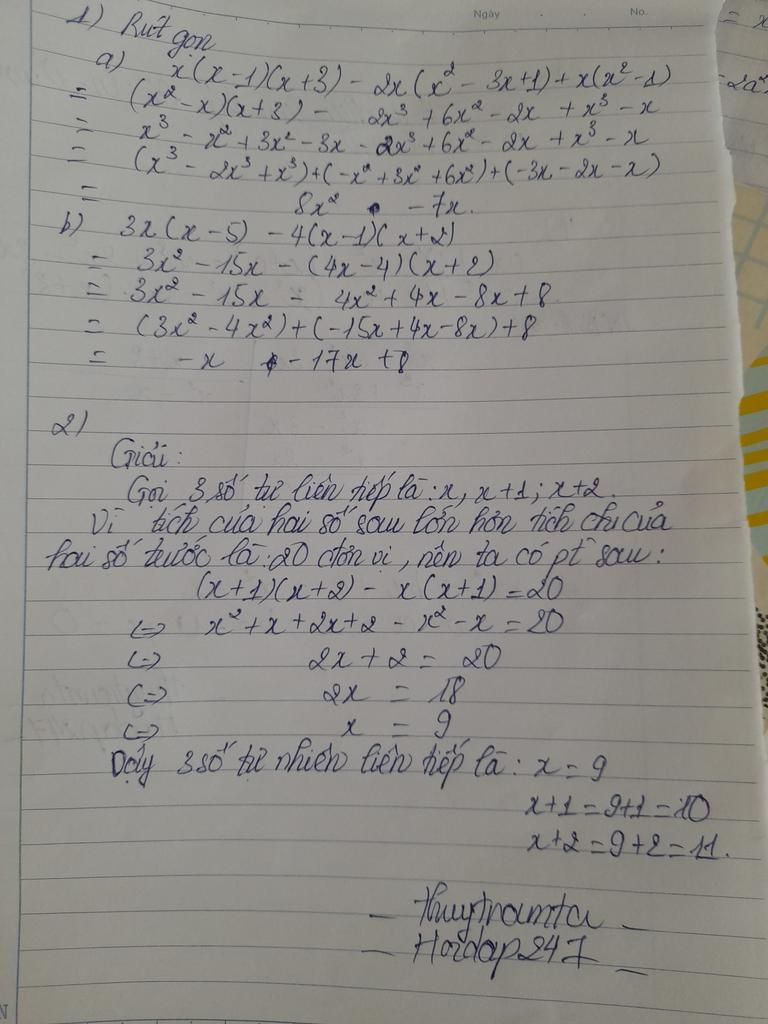 Ngày No.
1) Rút gọn
a) x(x-1)(x+3) - 2x(x² - 3x+1) + x(x²-1)
= (x² - x)(x+3) - 2x³ + 6x² - 2x + x³ - x
= x³ - x² + 3x² - 3x - 2x³ + 6x² - 2x + x³ - x
= (x³ - 2x³ + x³) + (-x² + 3x² + 6x²) + (-3x - 2x - x)
= 8x² - 7x.
b) 3x(x-5) - 4(x-1)(x+2)
= 3x² - 15x - (4x-4)(x+2)
= 3x² - 15x - 4x² + 4x - 8x + 8
= (3x² - 4x²) + (-15x + 4x - 8x) + 8
= -x - 17x + 8
2)
Giải:
Gọi 3 số tự liên tiếp là: x, x+1; x+2.
Vì tích của hai số sau lớn hơn tích của
hai số trước là: 20 đơn vị, nên ta có pt sau:
(x+1)(x+2) - x(x+1) = 20
<=> x² + x + 2x + 2 - x² - x = 20
<=> 2x + 2 = 20
<=> 2x = 18
<=> x = 9
Vậy 3 số tự nhiên liên tiếp là: x = 9
x+1 = 9+1 = 10
x+2 = 9+2 = 11.
- thuytramta -
- Hoidap247 -
= x
= 2a²